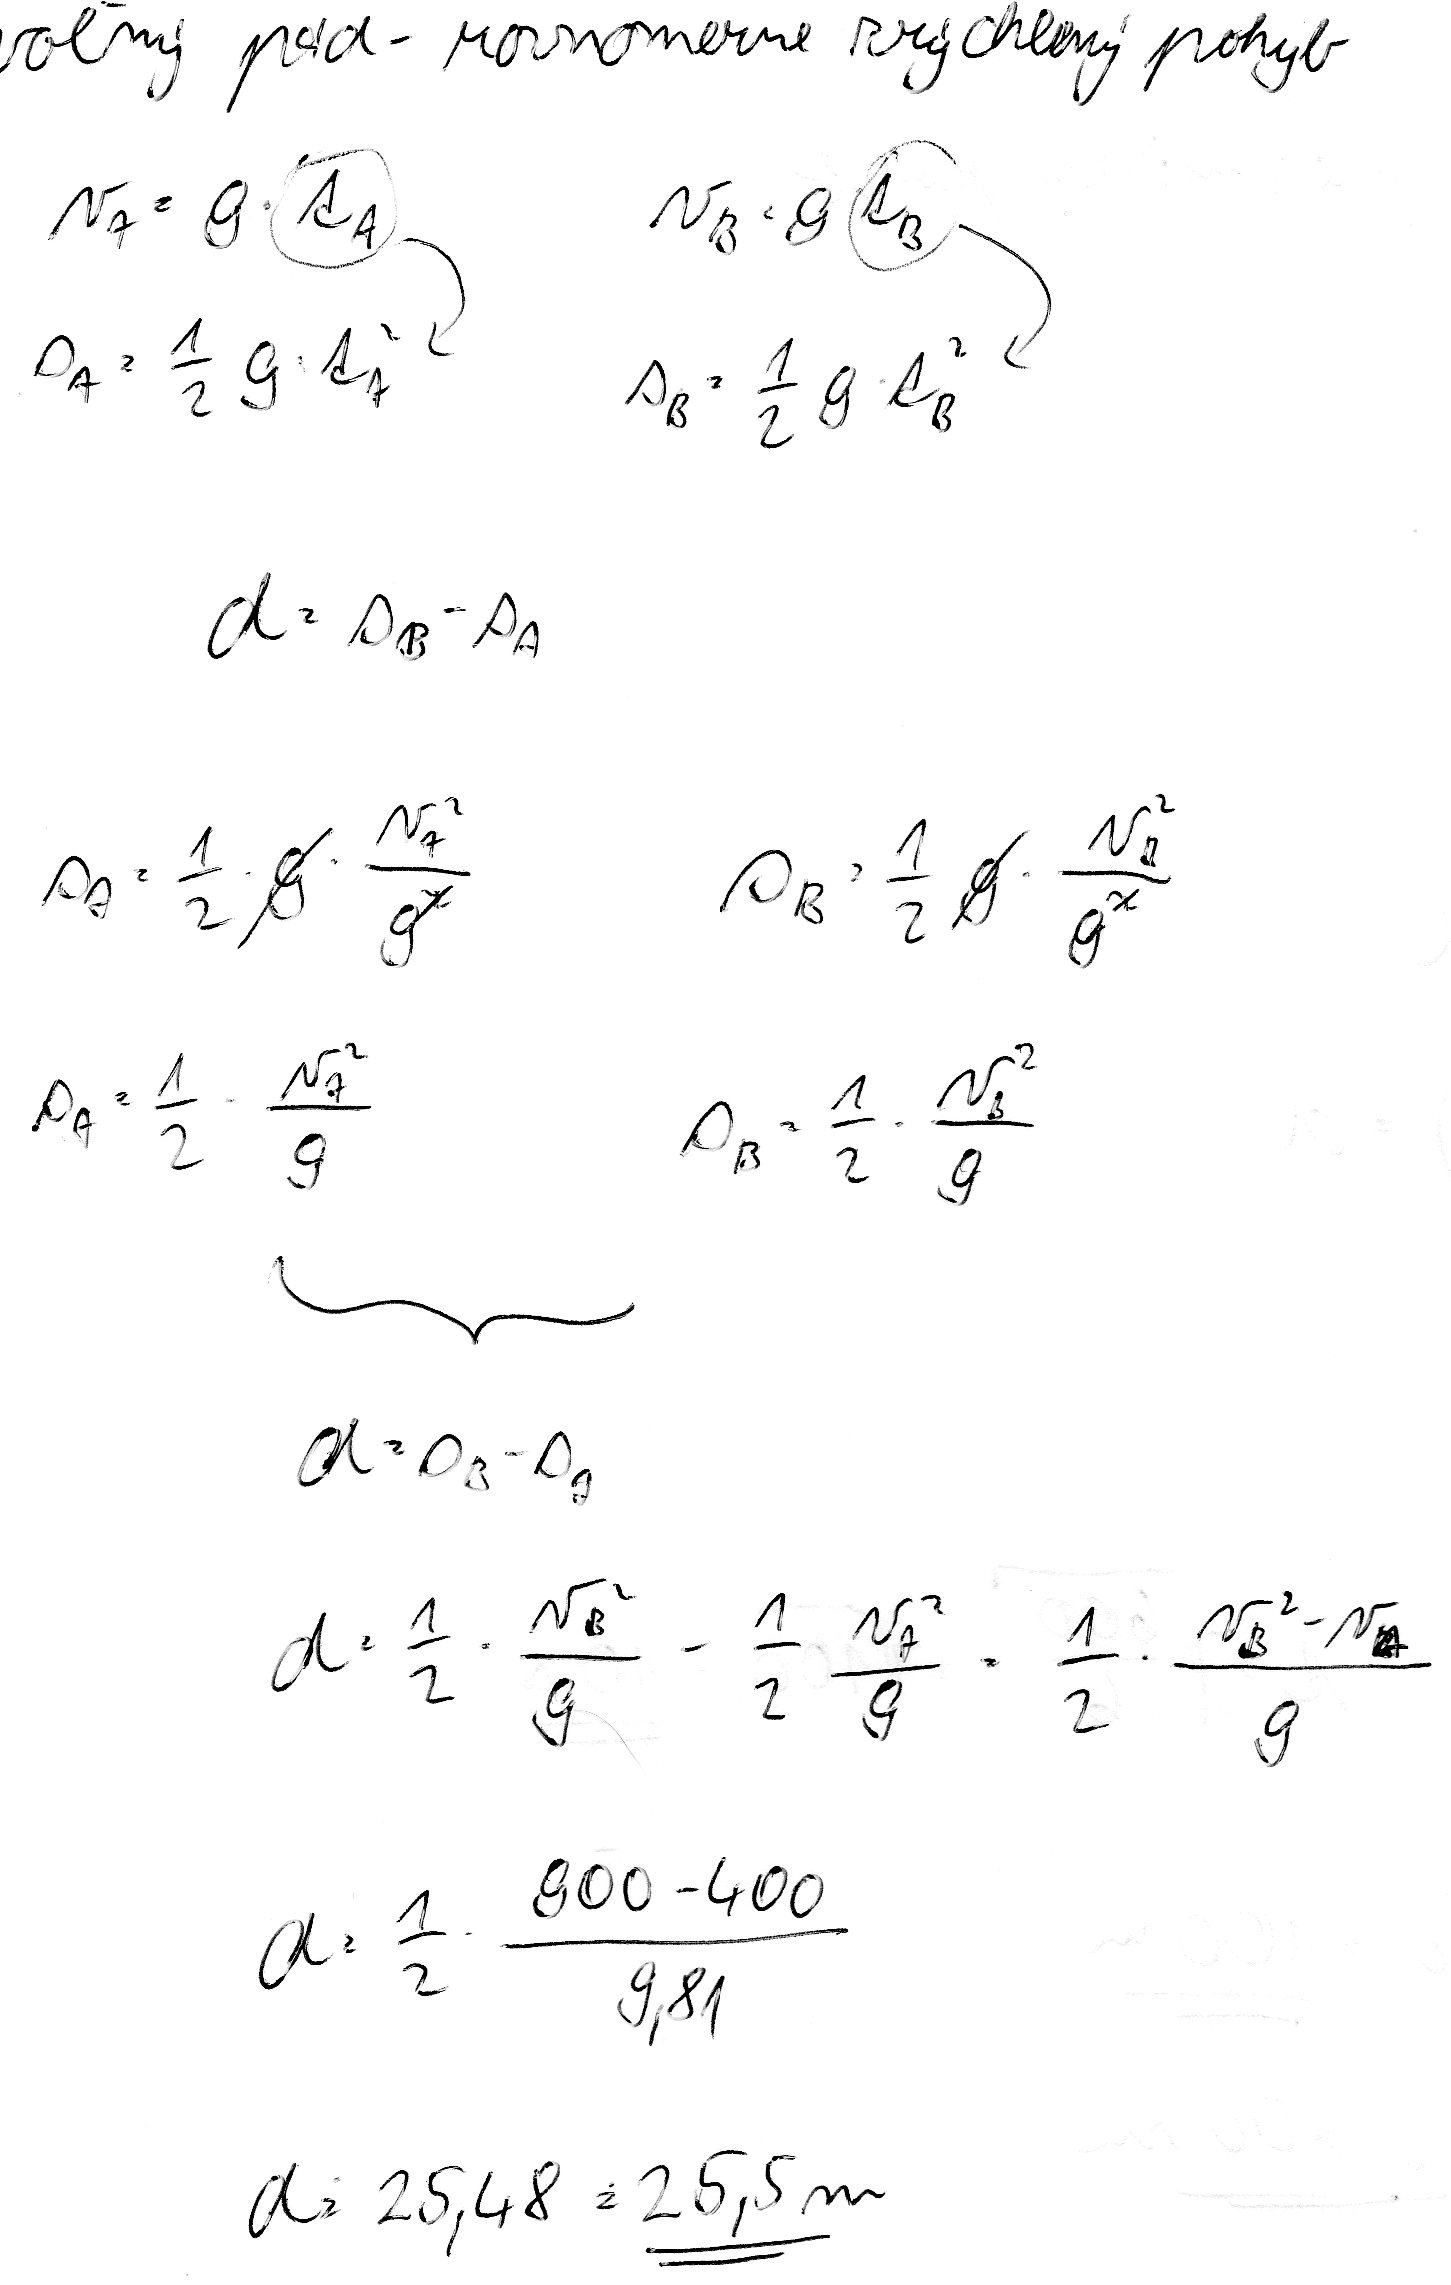 voľný pád - rovnomerne zrýchlený pohyb
v_A = g · t_A v_B = g t_B
s_A = 1/2 g · t_A² s_B = 1/2 g · t_B²
d = s_B - s_A
s_A = 1/2 · g · v_A²/g² s_B = 1/2 g · v_B²/g²
s_A = 1/2 · v_A²/g s_B = 1/2 · v_B²/g
d = s_B - s_A
d = 1/2 · v_B²/g - 1/2 v_A²/g = 1/2 · v_B² - v_A/g
d = 1/2 · 900 - 400/9,81
d = 25,48 = 25,5 m